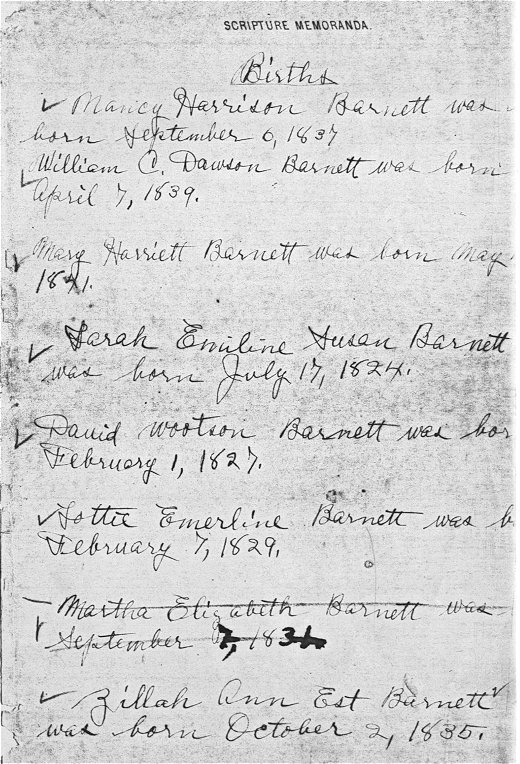 SCRIPTURE MEMORANDA.
Births
Nancy Harrison Barnett was
born September 6, 1837
William C. Dawson Barnett was born
April 7, 1839.
Mary Harriett Barnett was born May
1841.
Sarah Emiline Susan Barnett
was born July 17, 1824.
David Wootson Barnett was bor
February 1, 1827.
Lottie Emerline Barnett was b
February 7, 1829.
Martha Elizabeth Barnett was
September
Zillah Ann Est Barnett
was born October 2, 1835.